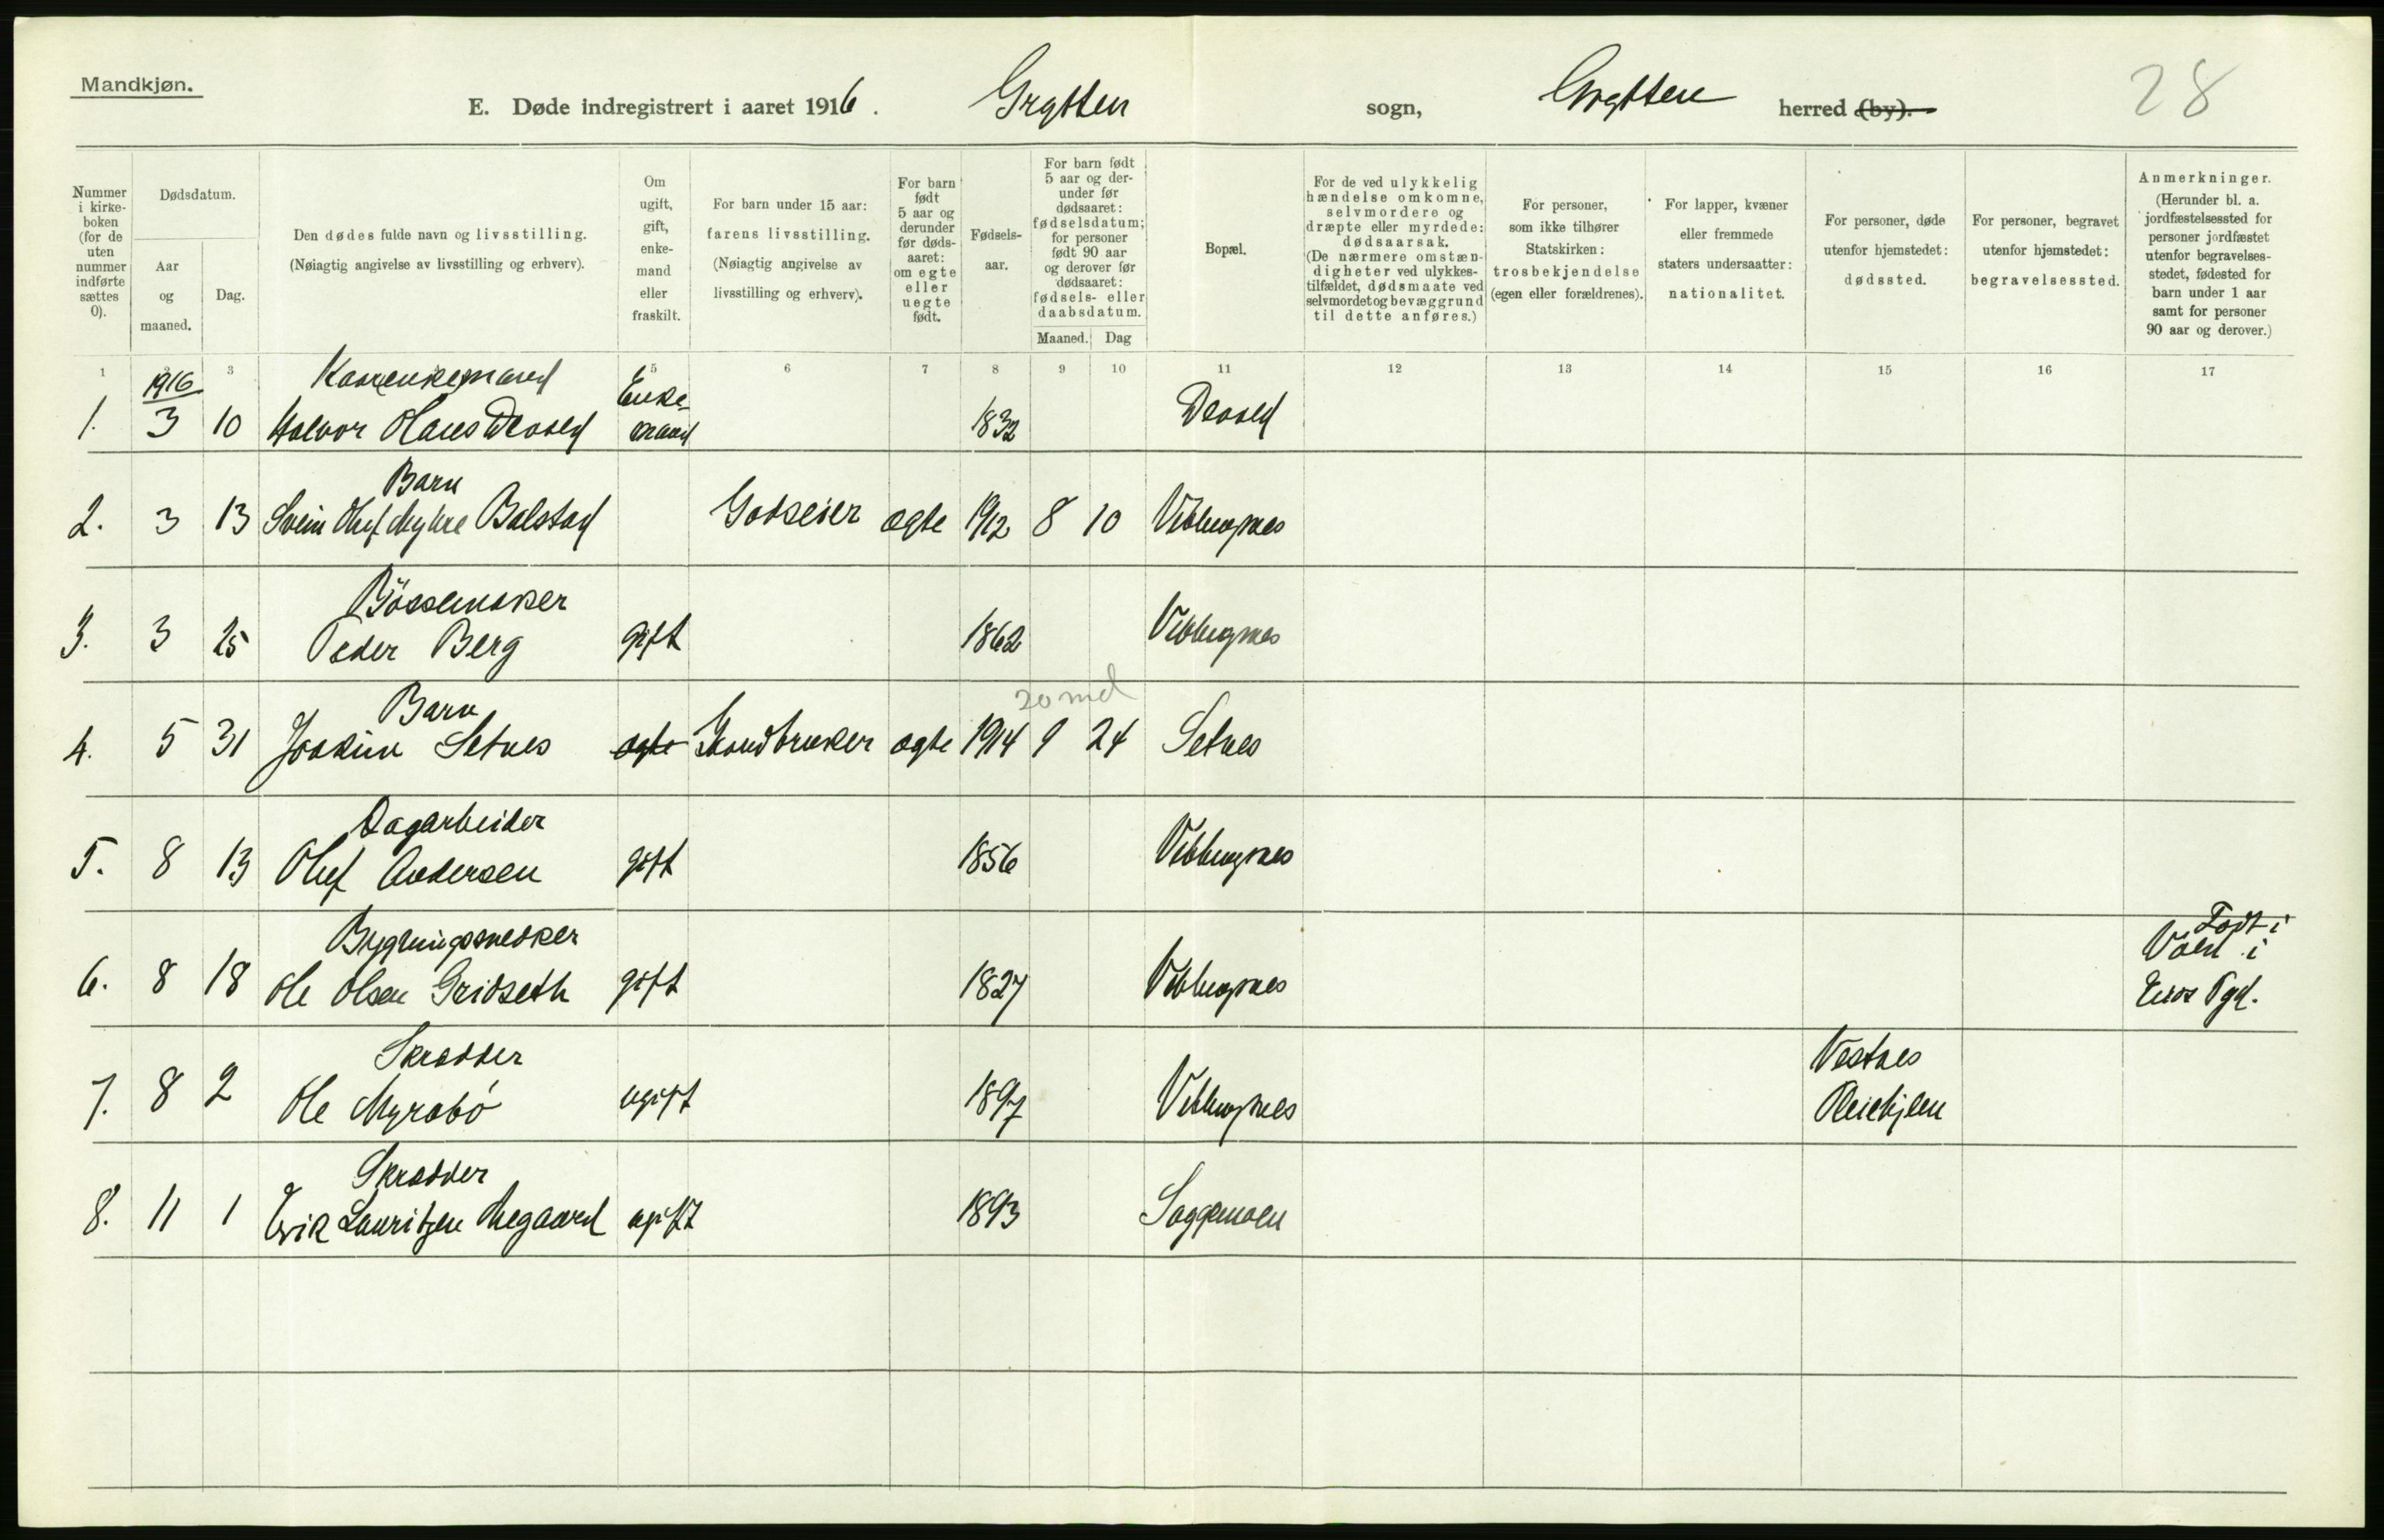 Mandkjøn.
E. Døde indregistrert i aaret 1916. Grytten sogn, Grytten herred (by).
28
Nummer i kirkeboken (for de uten nummer indførte sættes 0).
Dødsdatum.
Aar og maaned.
Dag.
Den dødes fulde navn og livsstilling.
(Nøiagtig angivelse av livsstilling og erhverv).
Om ugift, gift, enkemand eller fraskilt.
For barn under 15 aar: farens livsstilling.
(Nøiagtig angivelse av livsstilling og erhverv).
For barn født 5 aar og derunder før dødsaaret: om egte eller uegte født.
Fødselsaar.
For barn født 5 aar og derunder før dødsaaret: fødselsdatum; for personer født 90 aar og derover før dødsaaret: fødsels- eller daabsdatum.
Maaned. Dag
Bopæl.
For de ved ulykkelig hændelse omkomne, selvmordere og dræpte eller myrdede: dødsaarsak.
(De nærmere omstændigheter ved ulykkestilfældet, dødsmaate ved selvmordet og bevæggrund til dette anføres.)
For personer, som ikke tilhører Statskirken: trosbekjendelse (egen eller forældrenes).
For lapper, kvæner eller fremmede staters undersaatter: nationalitet.
For personer, døde utenfor hjemstedet: dødssted.
For personer, begravet utenfor hjemstedet: begravelsessted.
Anmerkninger.
(Herunder bl. a. jordfæstelsessted for personer jordfæstet utenfor begravelsesstedet, fødested for barn under 1 aar samt for personer 90 aar og derover.)
1 3 5 6 7 8 9 10 11 12 13 14 15 16 17
1916 Kaarenkemand Enke-
1. 3 10 Halvor Hans Devold mand 1832 Devold
Barn
2. 3 13 Svein Oluf Myhre Balstad Godseier ægte 1912 8 10 Veblungsnes
Bössemaker
3. 3 25 Peder Berg gift 1862 Veblungsnes
Barn 20 md
4. 5 31 Joakim Setnes ægte Gaardbruker ægte 1914 9 24 Setnes
Dagarbeider
5. 8 13 Oluf Andersen gift 1856 Veblungsnes
Bygningssnedker Født i
6. 8 18 Ole Olsen Gridseth gift 1827 Veblungsnes Vold i
Eids Pgd.
Skrædder Vestnes
7. 8 2 Ole Myrabö ugift 1897 Veblungsnes
Skrædder
8. 11 1 Erik Lauritzen Aegaard ugift 1893 Soggemoen